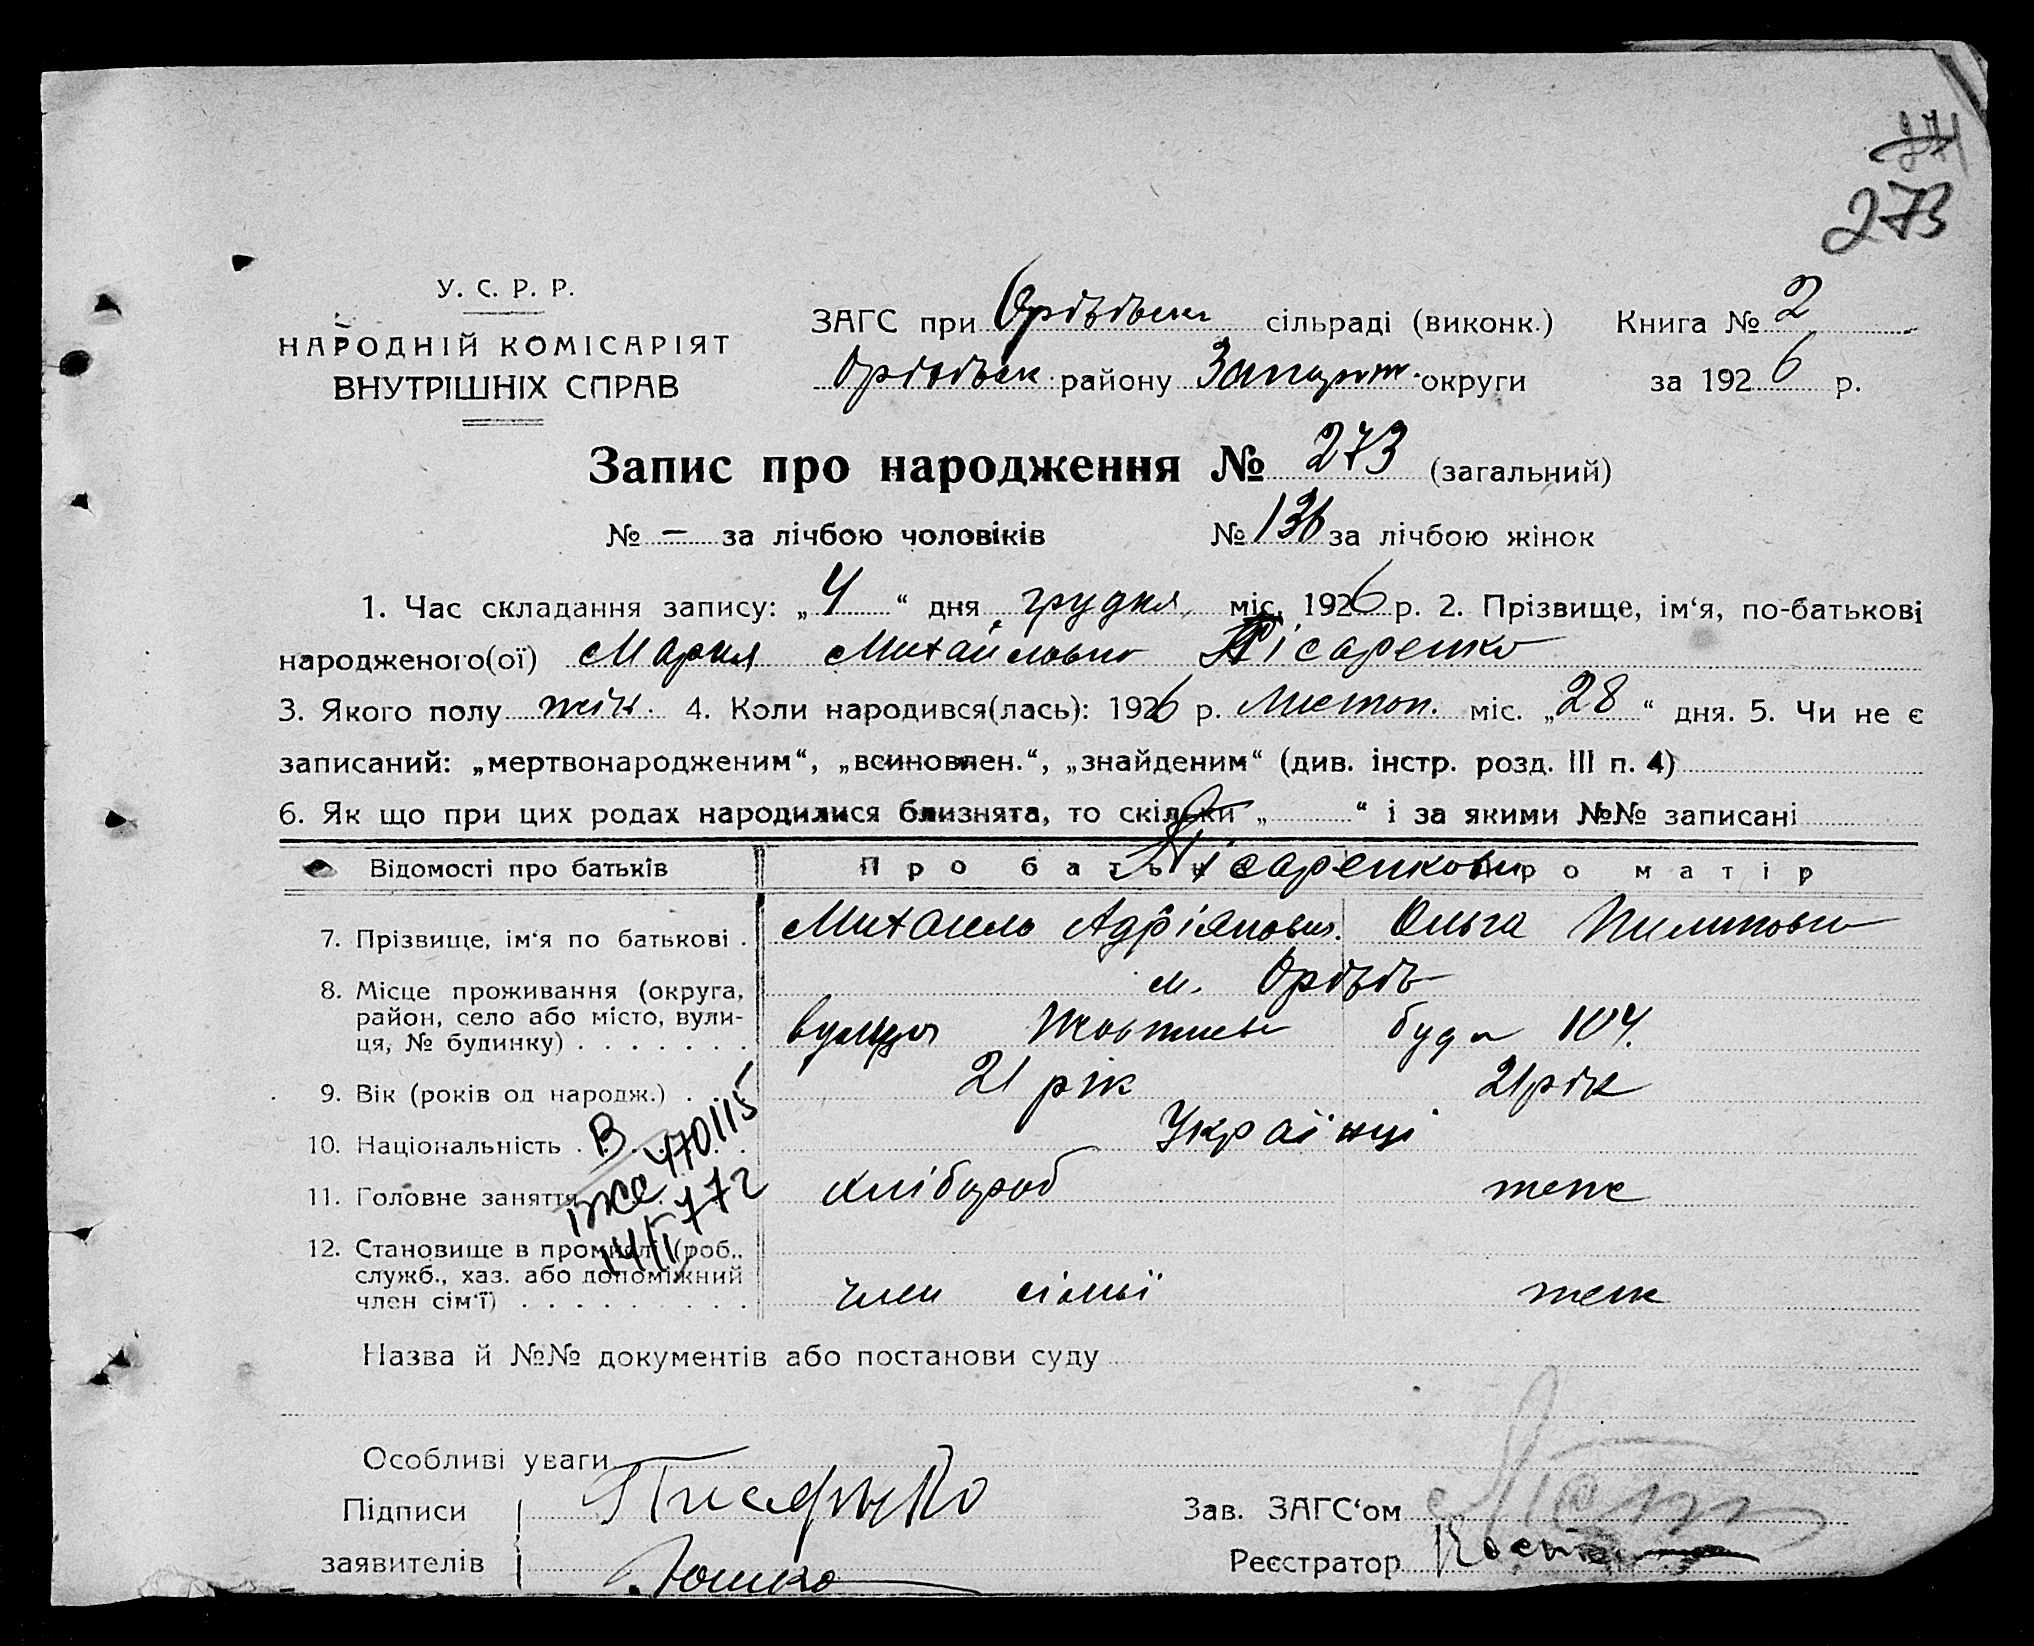 274
273
У. С. Р. Р.
НАРОДНІЙ КОМІСАРІЯТ
ВНУТРІШНІХ СПРАВ
ЗАГС при Оріхівськ сільраді (виконк.) Книга № 2
Оріхівськ району Запоріж. округи за 1926 р.
Запис про народження № 273 (загальний)
№ — за лічбою чоловіків № 136 за лічбою жінок
1. Час складання запису: „4“ дня грудня міс. 1926 р. 2. Прізвище, ім‘я, по-батькові
народженого(ої) Мария Михайловна Пісаренко
3. Якого полу жін. 4. Коли народився(лась): 1926 р. Листоп. міс. „28“ дня. 5. Чи не є
записаний: „мертвонародженим“, „всиновлен.“, „знайденим“ (див. інстр. розд. III п. 4)
6. Як що при цих родах народилися близнята, то скільки „ “ і за якими №№ записані
Відомості про батьків Про батька Про матір
Пісаренкови
7. Прізвище, ім‘я по батькові . Михаель Адріянович. Ольга Пилиповна
8. Місце проживання (округа, район, село або місто, вули-ця, № будинку) . . . . . . . м. Оріхів
вулиця Жовтнева буд 104.
9. Вік (років од народж.) . . 21 рік 21 рік
10. Національність . . . . . Українці
11. Головне заняття . . . . хлібороб теж
12. Становище в промислі (роб., служб., хаз. або допоміжний член сім‘ї) . . . . . . . . . член сімьї теж
470115
Назва й №№ документів або постанови суду
Особливі уваги
Підписи Писаренко Зав. ЗАГС‘ом
заявителів Реєстратор